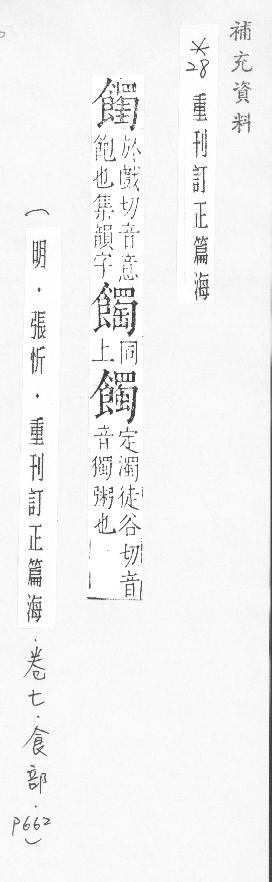 補充資料
*28 重刊訂正篇海
於戲切音意
飽也集韻字
同
上
定濁徒谷切音
音獨粥也
(明·張忻·重刊訂正篇海·卷七·食部·P662)